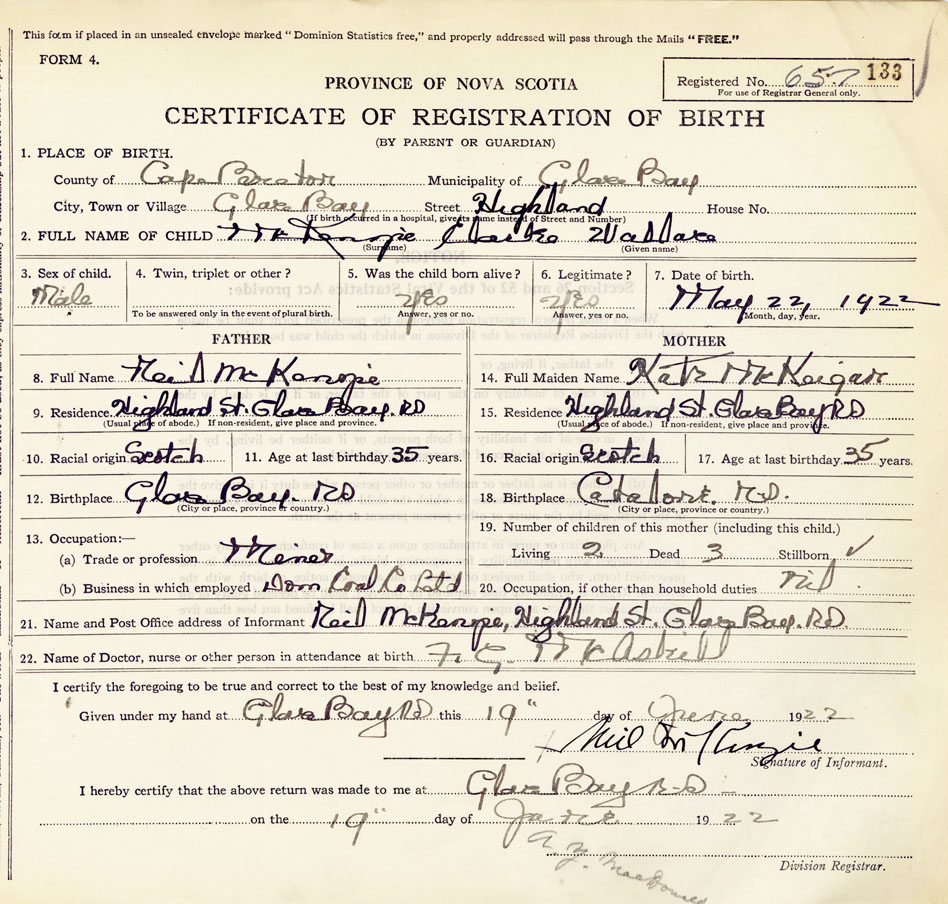 This form if placed in an unsealed envelope marked "Dominion Statistics free," and properly addressed will pass through the Mails "FREE."
FORM 4.
PROVINCE OF NOVA SCOTIA
Registered No. 657 133
For use of Registrar General only.
CERTIFICATE OF REGISTRATION OF BIRTH
(BY PARENT OR GUARDIAN)
1. PLACE OF BIRTH.
County of Cape Breton Municipality of Glace Bay
City, Town or Village Glace Bay Street Highland House No.
(If birth occurred in a hospital, give its name instead of Street and Number)
2. FULL NAME OF CHILD McKenzie Clarke Wallace
(Surname) (Given name)
3. Sex of child. 4. Twin, triplet or other? 5. Was the child born alive? 6. Legitimate? 7. Date of birth.
Male yes yes May 22, 1922
To be answered only in the event of plural birth. Answer, yes or no. Answer, yes or no. Month, day, year.
FATHER MOTHER
8. Full Name Neil McKenzie 14. Full Maiden Name Kate McKeigan
9. Residence. Highland St. Glace Bay. RD 15. Residence Highland St. Glace Bay RD
(Usual place of abode.) If non-resident, give place and province. (Usual place of abode.) If non-resident, give place and province.
10. Racial origin Scotch 11. Age at last birthday 35 years. 16. Racial origin Scotch 17. Age at last birthday 35 years.
12. Birthplace Glace Bay. RD 18. Birthplace Catalone. RD.
(City or place, province or country.) (City or place, province or country.)
13. Occupation:— 19. Number of children of this mother (including this child.)
(a) Trade or profession Miner Living 2 Dead 3 Stillborn ✓
(b) Business in which employed Dom Coal Co Ltd 20. Occupation, if other than household duties Nil
21. Name and Post Office address of Informant Neil McKenzie, Highland St. Glace Bay. RD
22. Name of Doctor, nurse or other person in attendance at birth McAskill
I certify the foregoing to be true and correct to the best of my knowledge and belief.
Given under my hand at Glace Bay RD this 19" day of June 1922
Neil McKenzie
Signature of Informant.
I hereby certify that the above return was made to me at Glace Bay RD
on the 19" day of June 1922
MacDonald
Division Registrar.